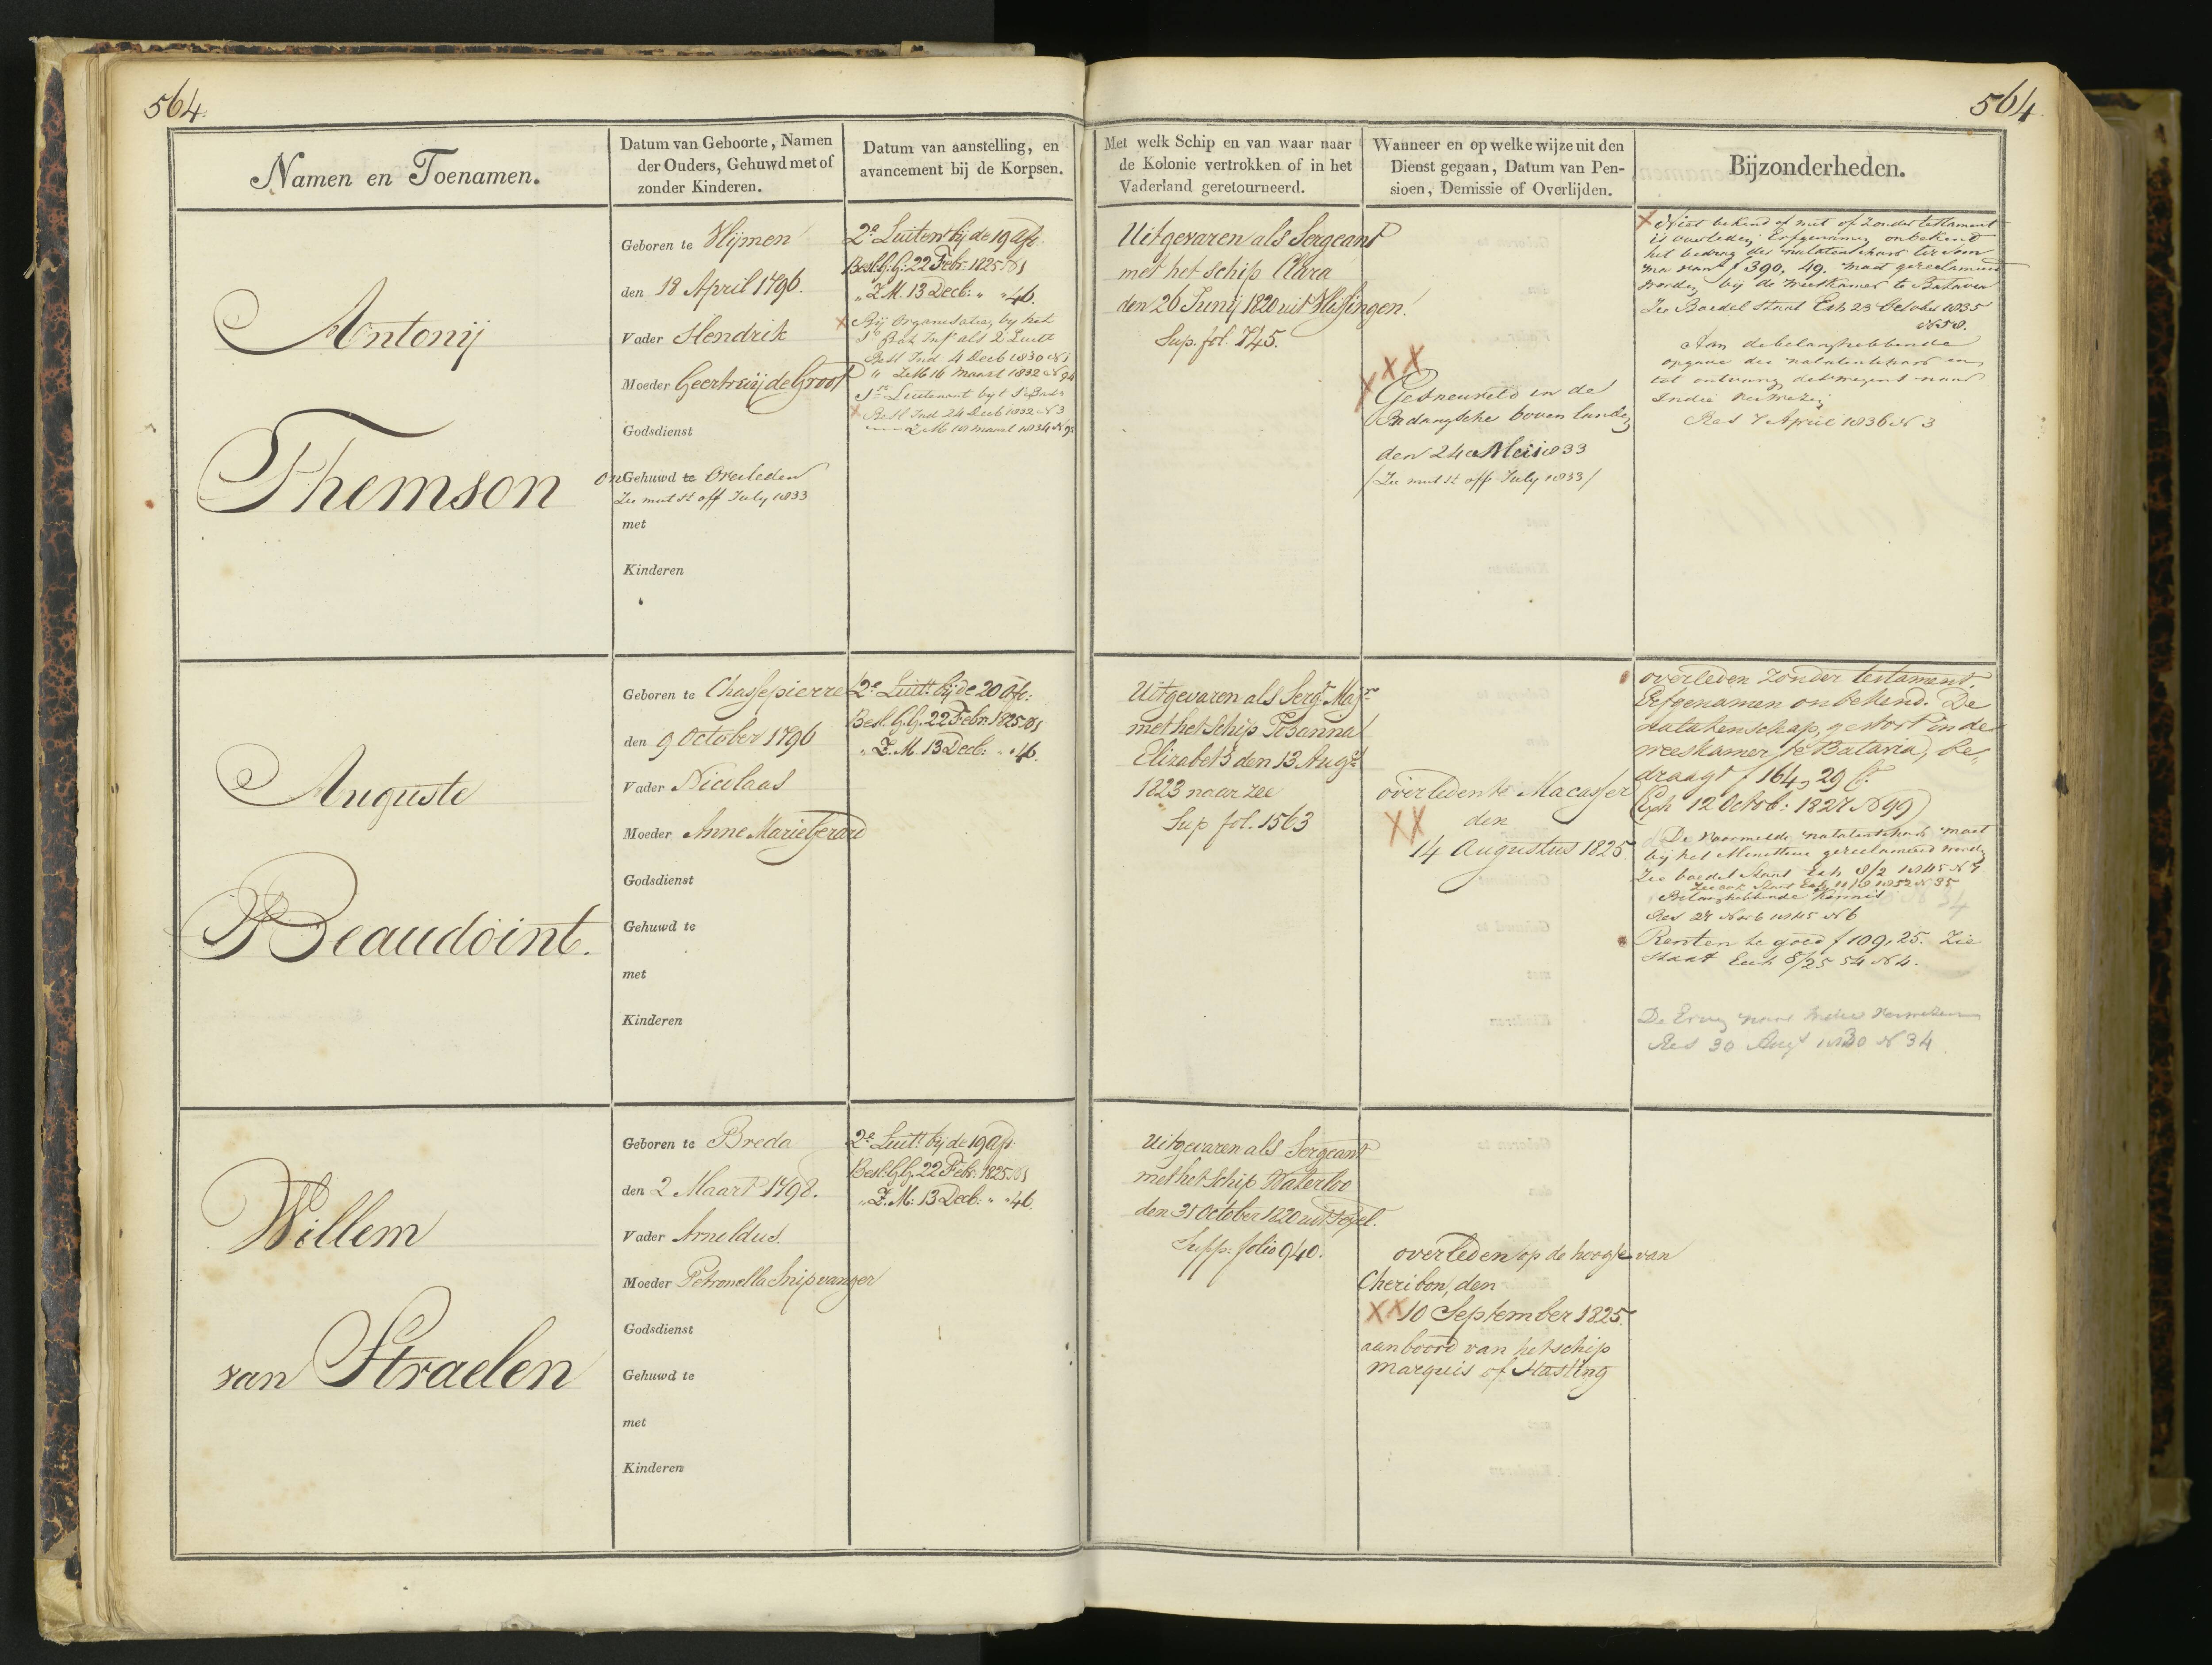 564
564
Namen en Toenamen.
Datum van Geboorte, Namen
der Ouders, Gehuwd met of
zonder Kinderen.
Datum van aanstelling, en
avancement bij de Korpsen.
Met welk Schip en van waar naar
de Kolonie vertrokken of in het
Vaderland geretourneerd.
Wanneer en op welke wijze uit den
Dienst gegaan, Datum van Pen-
sioen, Demissie of Overlijden.
Bijzonderheden.
Antonij
Themson
Geboren te Vlijmen
den 18 April 1796.
Vader Hendrik
Moeder Geertruij de Groot
Godsdienst
onGehuwd te Overleden
Zie mut st off July 1833
met
Kinderen
2e Luitent bij de 19 Afe.
Besl. G.G. 22 Febr. 1825 N1
„ Z.M. 13 Decb: „ „ 46.
Bij organisatie, by het
1e Bat Inf als 2 Luitt
Besl Ind 4 Decb 1830 N 1
„ ZM 16 Maart 1832 N 94
1ste Luitenant by t 1e Bat
Besl Ind 24 Decb 1832 N 3
ZM 18 maart 1834 N 9
Uitgevaren als Sergeant
met het schip Clara
den 26 Junij 1820 uit Vlissingen.
Sup. fol. 745.
XXX
Gesneuveld in de
Padangsche boven landen
den 24 Mei 1833
/Zie mut st off July 1833/
X Niet bekend of met of zonder testament
is overleden, Erfgenamen onbekend
het bedrag der nalatenschap ter som
ma van f 390, 49. moet gereclameerd
worden bij de weeskamer te Batavia
Zie Boedel staat Exh 23 October 1835
N 58.
Aan de belanghebbende
opgave der nalatenschap en
tot ontvang deswegens naar
Indie verwezen
Res 7 April 1836 N 3
Auguste
Beaudoint.
Geboren te Chassepierre
den 9 October 1796
Vader Nicolaas
Moeder Anne Marie Gerard
Godsdienst
Gehuwd te
met
Kinderen
2e Luitt. bij de 20 Afe:
Besl. G.G. 22 Febr. 1825 N1
„ Z.M. 13 Decb: „ „ 46.
Uitgevaren als Sergt Majr
met het Schip Rosanna
Elizabeth den 13 Augt
1823 naar zee
Sup fol. 1563
overleden te Macasser
XX den
14 Augustus 1825.
overleden zonder testament,
Erfgenamen onbekend. De
nalatenschap, gestort in de
weeskamer te Batavia, be„
draagt f 164, 29 Ct.
(Exh 12 Octob: 1827 N 99)
De voormelde nalatenschap moet
bij het Ministerie gereclameerd worden
Zie boedel staat Exh 8/2 1845 N 7
Zie ook staat Exh 11/9 1852 N 35
Belanghebbende Kennis
Res 27 Novb 1845 N 6
Renten te goed f 109,25. Zie
staat Exh 8/25 54 N 4.
De Erven naar Indie verwezen
Res 30 Augt 1830 N 34
Willem
van Straelen
Geboren te Breda
den 2 Maart 1798.
Vader Arnoldus.
Moeder Petronella Snipvanger
Godsdienst
Gehuwd te
met
Kinderen
2e Luitt. bij de 19 Afe.
Besl. G.G. 22 Febr. 1825 N1
„ Z.M: 13 Decb: „ „ 46.
Uitgevaren als Sergeant
met het schip Waterloo
den 31 October 1820 uit Texel.
Supp: folio 940.
overleden op de hoogte van
Cheribon, den
XX 10 September 1825.
aan boord van het schip
Marquis of Hasting